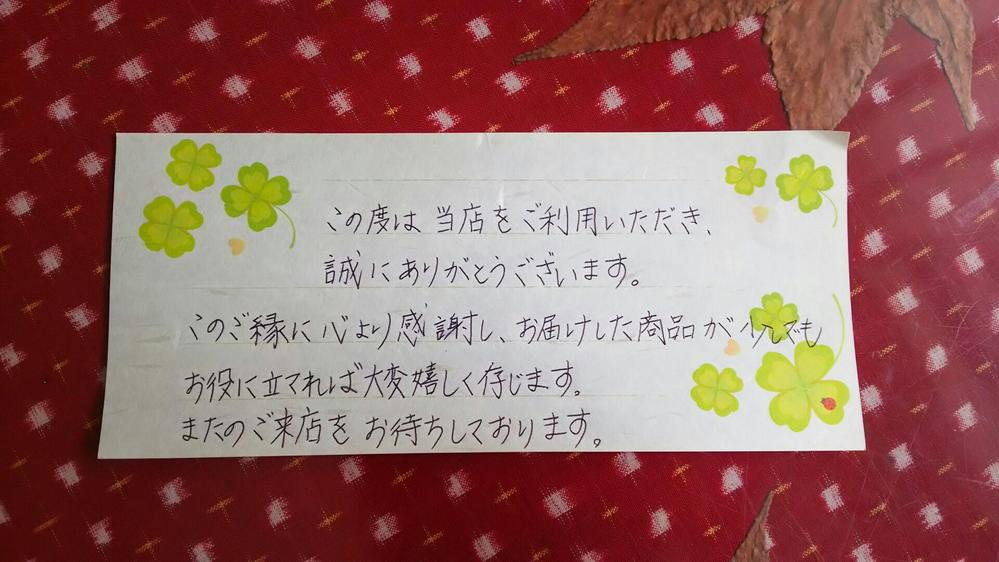 この度は 当店をご利用いただき、
誠にありがとうございます。
このご縁に心より感謝し、お届けした商品が少しでも
お役に立てれば大変嬉しく存じます。
またのご来店を お待ちしております。